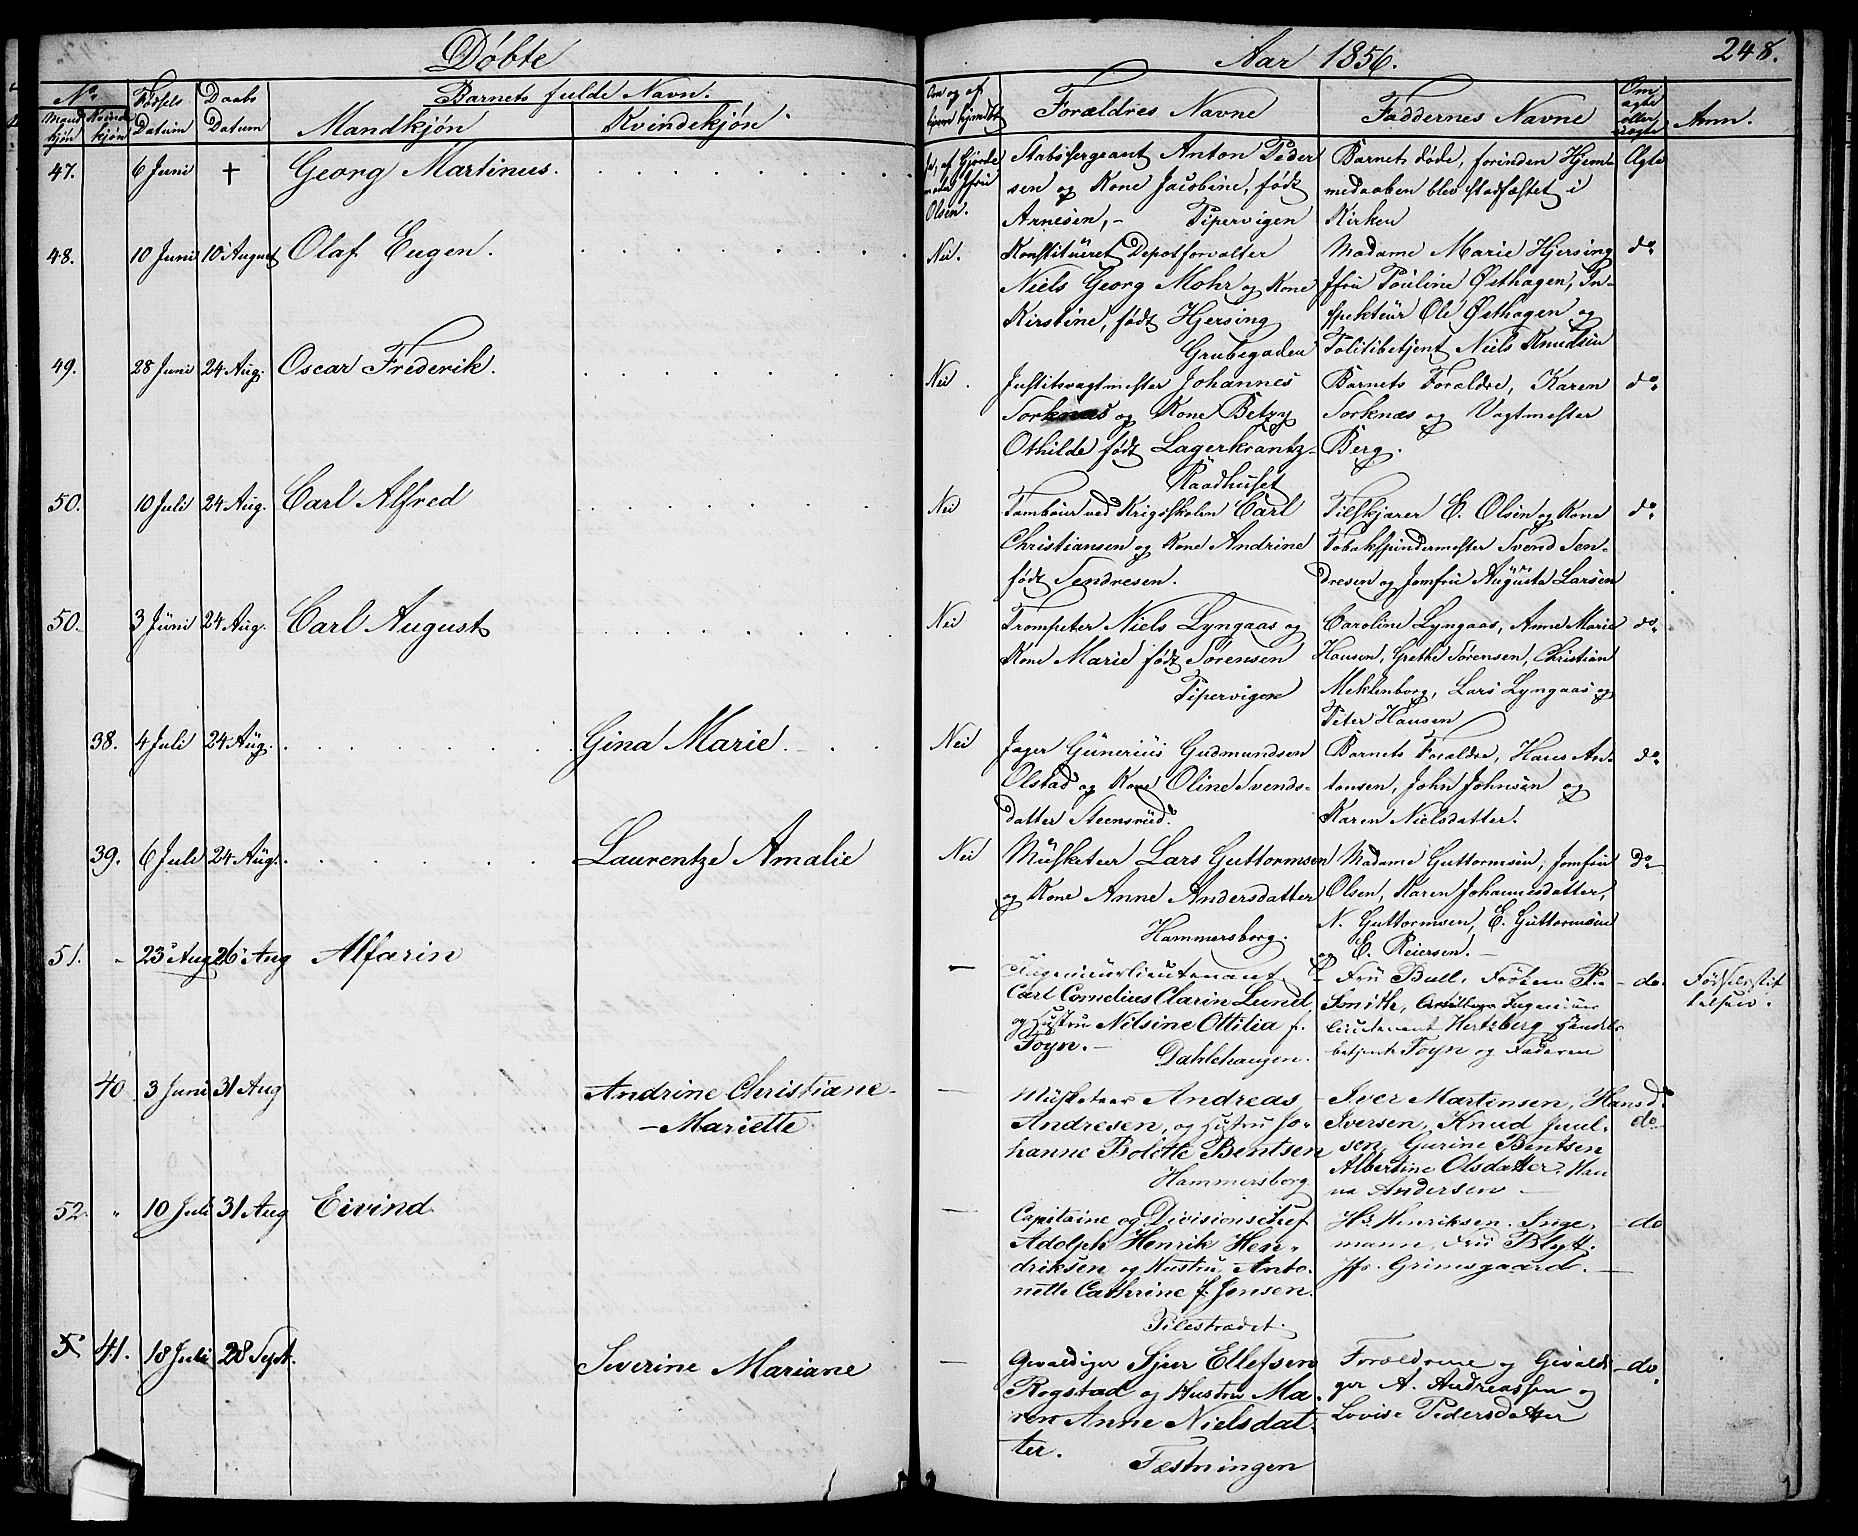 Døbte
Aar 1856.
248.
No
Mandkjøn
Kvindekjøn
Fødsels Datum
Daabs Datum
Barnets fulde Navn.
Mandkjøn
Kvindekjøn
Om og af hjemmedøbt
Forældres Navne
Faddernes Navne
Om ægte eller uægte
Anm.
47. 6 Juni + Georg Martinus.
Ja, af Gjordemoder Jfru Olsen.
Stabssergeant Anton Peder
sen og Kone Jacobine, født
Arnesen, - Pipervigen
Barnet døde, forinden Hjem-
medaaben blev stadfæstet i
Kirken
Ægte
48. 10 Juni 10 August Olaf Eugen.
Nei.
Konstitueret Depotforvalter
Niels Georg Mohr og Kone
Kirstine, født Hjersing
Grubegaden
Madame Marie Hjersing
Jfru Pouline Østhagen, In-
spekteur Ole Østhagen og
Politibetjent Niels Knudsen
do
49. 28 Juni 24 Aug. Oscar Frederik.
Nei.
Justitsvagtmester Johannes
Torknæs og Kone Betzy
Othilde født Lagerkrantz-
Raadhuset
Barnets Forældre, Karen
Torknæs og Vagtmester
Berg.
do
50. 10 Juli 24 Aug. Carl Alfred
Nei
Tambour ved Krigsskolen Carl
Christiansen og Kone Andrine
født Sendresen.
Filskjærer E. Olsen og Kone
Tobakspindermester Svend Sen-
dresen og Jomfru Augusta Larsen
do
50. 3 Juni 24 Aug. Carl August
Nei
Trompeter Niels Lyngaas og
Kone Marie født Sørensen
Pipervigen
Caroline Lyngaas, Anne Marie
Hansen, Grethe Sørensen, Christian
Meklenborg, Lars Lyngaas og
Peter Hansen
do
38. 4 Juli 24 Aug. Gina Marie.
Nei
Jæger Gunerius Gudmundsen
Olstad og Kone Oline Svends-
datter Steensrud.
Barnets Forældre, Hans An-
tonsen, John Johnsen og
Karen Nielsdatter.
do
39. 6 Juli 24 Aug. Laurentze Amalie
Nei
Musketeer Lars Guttormsen
og Kone Anne Andersdatter
Hammersborg.
Madame Guttormsen, Jomfru
Olsen, Karen Johannesdatter,
N. Guttormsen, E. Guttormsen
og E. Reiersen.
Do
51. 23 Aug 26 Aug Alfarin
Ingenieurlieutenant
Carl Cornelius Clarin Lund
og Hustru Nilsine Ottilia f.
Foyn. - Dahlehaugen.
Fru Bull, Frøken R.
Smith, Ingenieur
lieutenant Hertzberg, Handels
betjent Foyn og Faderen
do.
Fødselsstif
telsen.
40 3 Juni 31 Aug Andrine Christiane
- Mariette
Musketeer Andreas
Andresen, og Hustru Jo-
hanne Bolette Bentsen
Hammersborg
Iver Martinsen, Hans
Iversen, Knud Juul-
sen, Gurine Bentsen
Albertine Olsdatter, Han
na Andersen
do
52. 10 Juli 31 Aug Eivind
Capitaine og Divisionschef
Adolph Henrik Hen-
driksen og Hustru Anto-
nette Cathrine f. Jensen.
Pilestrædet.
Hr. Henriksen, Inge-
mann, Fru Blytt.
Jfr. Grimsgaard.
do
41. 18 Juli 28 Sept. Severine Mariane
Gevaldiger Sjur Ellefsen
Rogstad og Hustru Ma-
ren Anne Nielsdat-
ter.
Fæstningen
Forældrene og Gevaldi
ger A. Andreassen og
Lovise Pedersdatter
do.